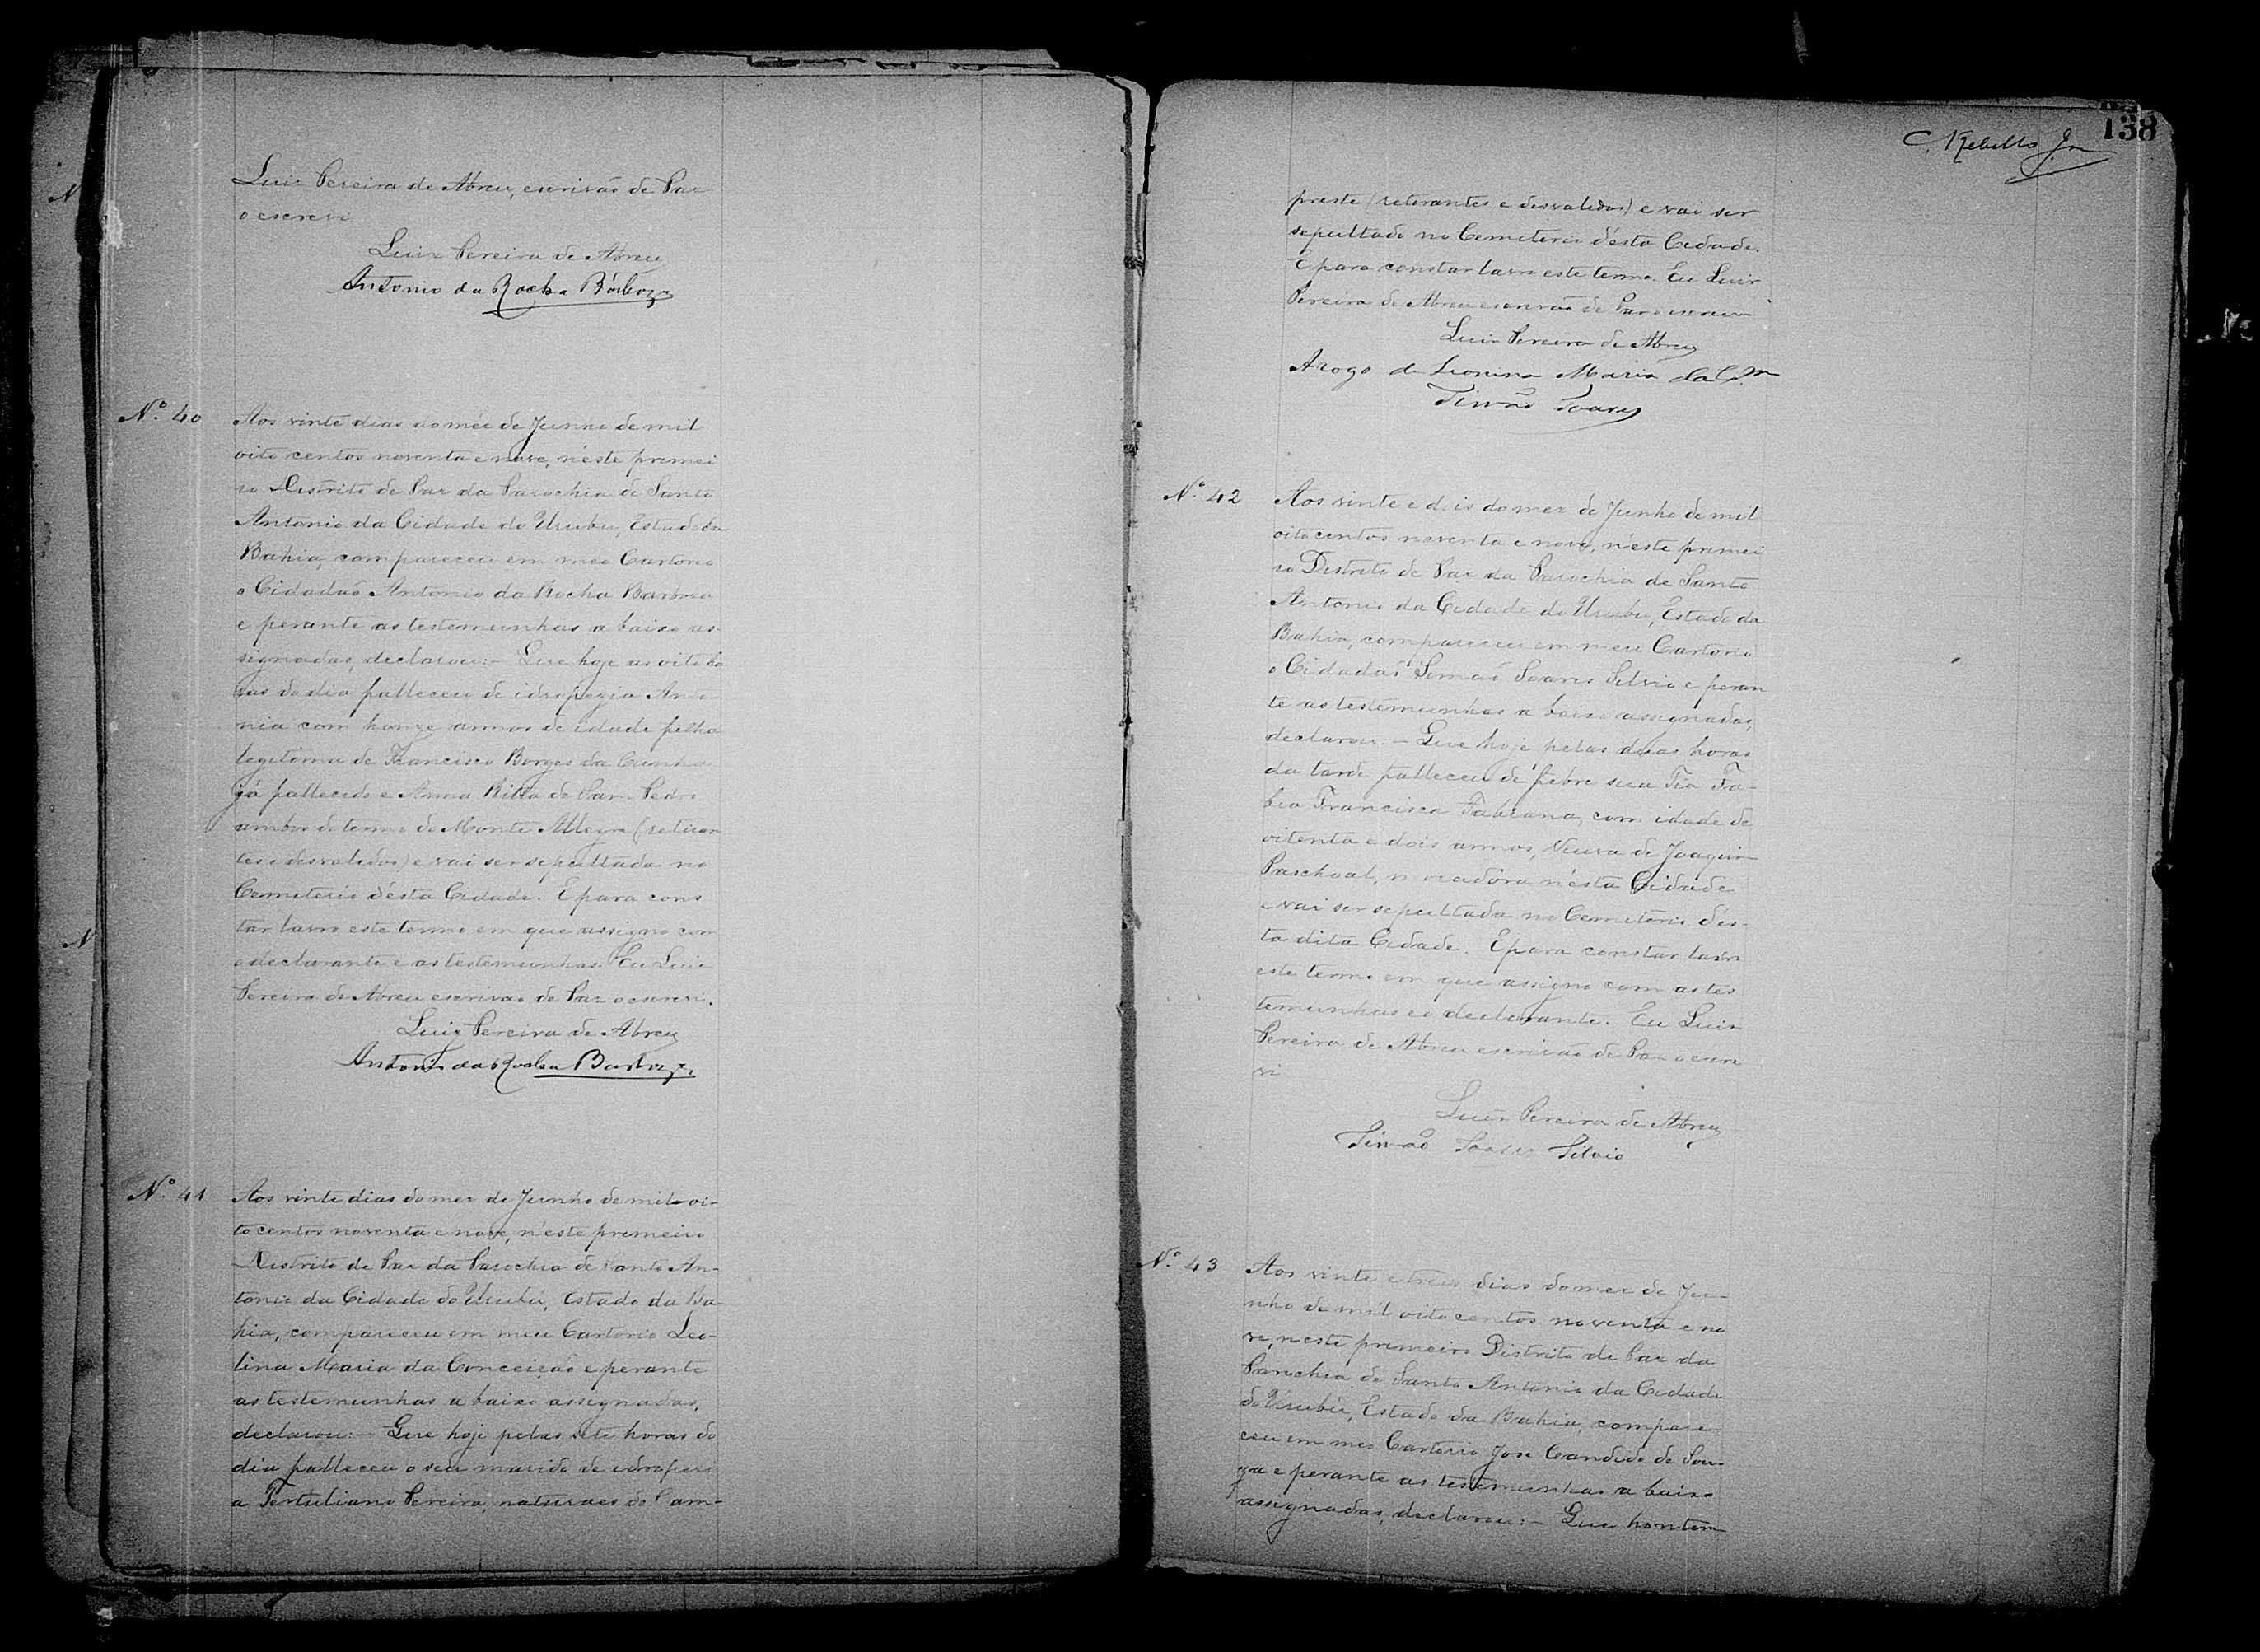 Luiz Pereira de Abreu, escrivão de Paz
o escrevi
Luiz Pereira de Abreu
Antonio da Rocha Barboza
Nº 40
Aos vinte dias do mez de Junho de mil
oito centos noventa e nove, n'este primei
ro Districto de Paz da Parochia de Santo
Antonio da Cidade do Urubu, Estado da
Bahia, compareceu em meo Cartorio
o Cidadão Antonio da Rocha Barboza
e perante as testemunhas a baixo as-
signadas, declarou:- Que hoje as oito ho
ras do dia falleceu de idropezia Anto
nia com honze annos de idade filha
legitima de Francisco Borges da Cunha
já fallecido e Anna Ritta de Sam Pedro
ambos do termo de Monte Alegre (retiran
tes e desvalidos) e vai ser sepultada no
Cemeterio d'ésta Cidade. E para cons
tar lavro este termo em que assigno com
o declarante e as testemunhas. Eu Luiz
Pereira de Abreu escrivão de Paz o escrevi.
Luiz Pereira de Abreu
Antonio da Rocha Barboza
Nº 41
Aos vinte dias do mez de Junho de mil oi-
to centos noventa e nove, n'este primeiro
Districto de Paz da Parochia de Santo An-
tonio da Cidade do Urubú, Estado da Ba-
hia, compareceu em meu Cartorio Leo-
lina Maria da Conceição e perante
as testemunhas a baixo assignadas,
declarou:- Que hoje pelas sete horas do
dia falleceu o seu marido de idropezi
a Tertuliano Pereira, naturaes do Cam-
138
Rebello Jr
preste (reterantes e desvalidos) e vai ser
sepultado no Cemeterio d'ésta Cidade.
E para constar lavro este termo. Eu Luiz
Pereira de Abreu escrivão de Paz o escrevi
Luiz Pereira de Abreu
Arogo de Leonina Maria da Cam
Simão Soares
Nº 42
Aos vinte e dois do mez de Junho de mil
oitocentos noventa e nove, n'este primei
ro Destrito de Paz da Parochia de Santo
Antonio da Cidade do Urubu, Estado da
Bahia, compareceu em meu Cartorio
o Cidadão Simão Soares Silvio e peran
te as testemunhas a baixo assignadas,
declarou:- Que hoje pelas duas horas
da tarde falleceu de febre sua Tia Fa-
bia Francisca Fabiana, com idade de
oitenta e dois annos, Viuva de Joaquim
Paschoal, moradôra n'ésta Cidade
e vai ser sepultada no Cemeterio dés-
ta dita Cidade. E para constar lavro
este termo em que assigno com as tes
temunhas e o declarante. Eu Luiz
Pereira de Abreu escrivão de Paz o escre
vi
Luiz Pereira de Abreu
Simão Soares Silvio
Nº 43
Aos vinte e trêis dias do mez de Ju-
nho de mil oito centos noventa e no
ve, n'este primeiro Districto de Paz da
Parochia de Santo Antonio da Cidade
do Urubú, Estado da Bahia, compare
ceu em meo Cartorio Jose Candido de Sou-
za e perante as testemunhas a baixo
assignadas, declarou:- Que hontem